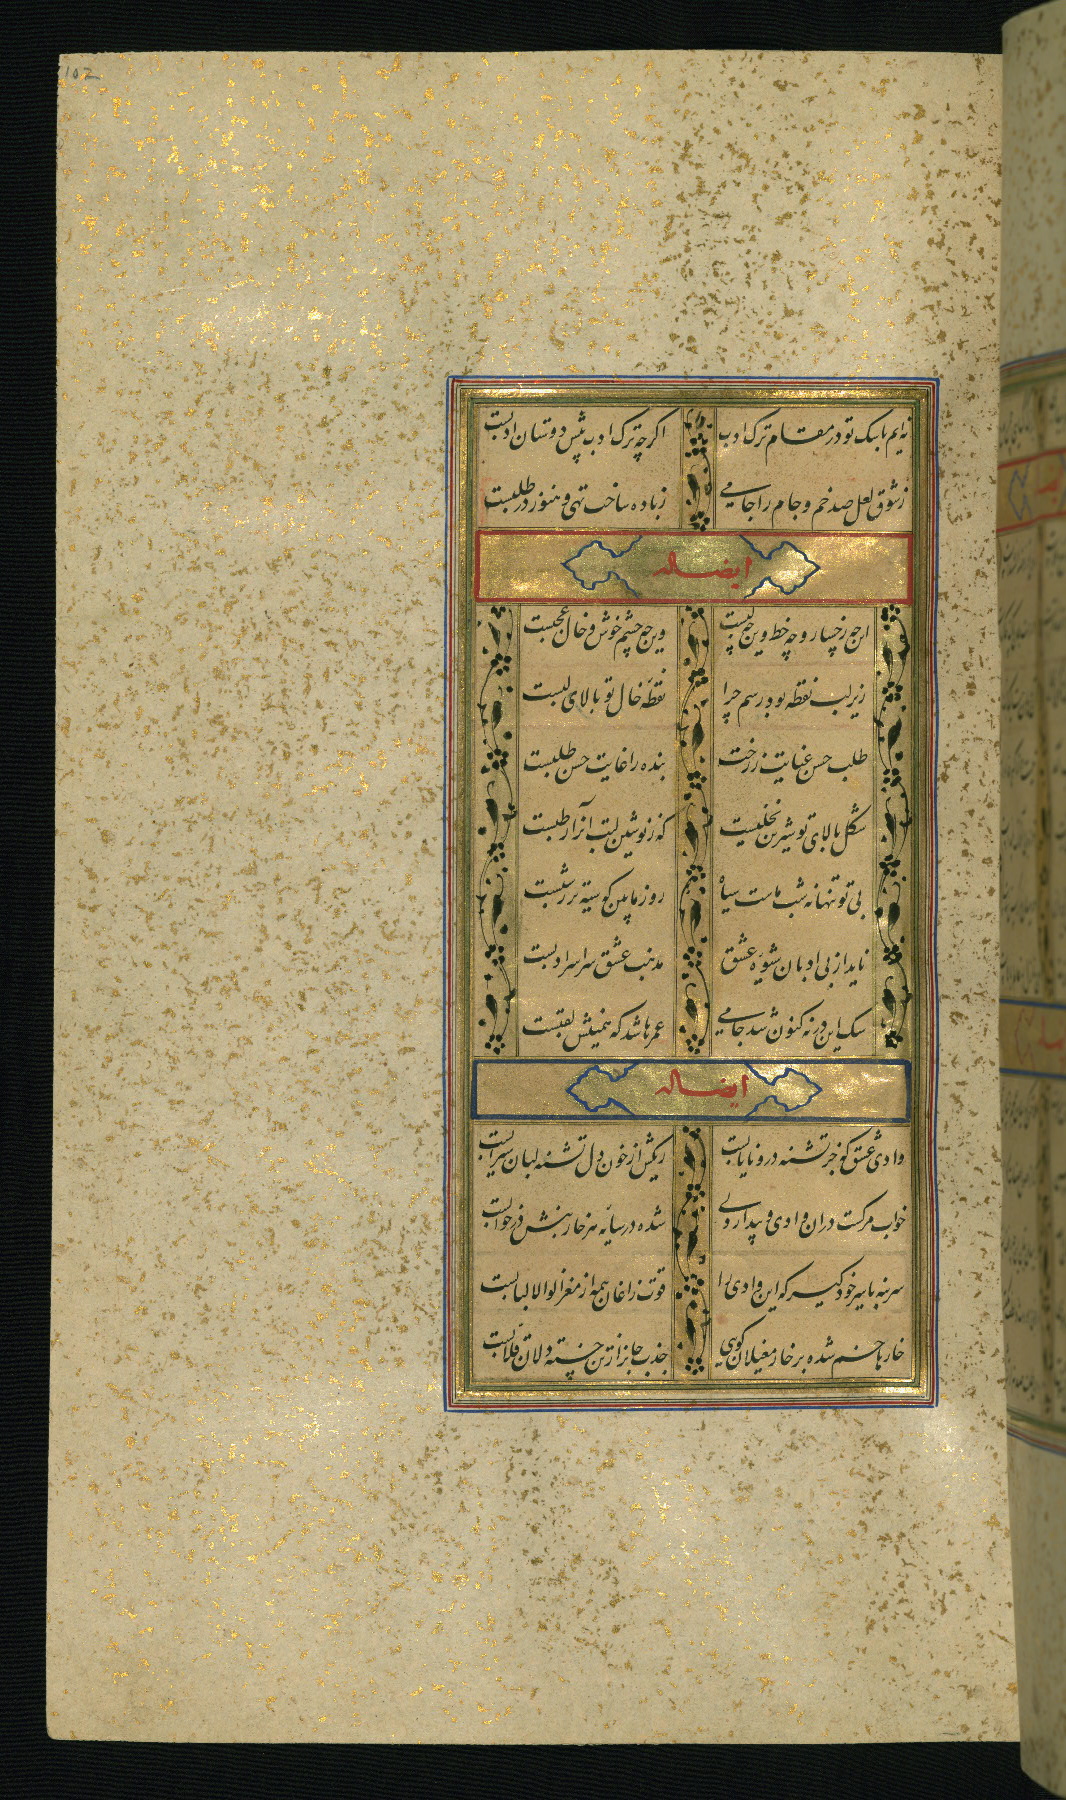 102
نه‌ایم با سک تو در مقام ترک ادب اکرچه ترک ادب پیش دوستان ادبست
ز شوق لعل صد خم و جام را جامی ز باده ساخت تهی و هنوز در طلبست
ایضاله
این چه رخسار و چه خط وین چه لبست وین چه چشم خوش و خال عجبست
زیر لب نقطه بود رسم چرا نقطه خال تو بالای لبست
طلب حسن عنایت ز رخت بنده را غایت حسن طلبست
شکل بالای تو شیرین نخلیست که ز نوشین لبت آنرا رطبست
بی تو تنها نه شب ماست سیاه روز ما بین که سیه تر ز شبست
ناید از بی ادبان شیوه عشق مذهب عشق سراسر ادبست
سک این در نه کنون شد جامی عمرها شد که همینش لقبست
ایضاله
وادی عشق که جز تشنه درو نایابست ریکش از خون دل تشنه لبان سیرابست
خواب مرکست دران وادی و بیدار دلی شده در سایه هر خاربنش در خوابست
سر بنه یا سر خود کیر که این وادی را قوت زاغان همه از مغز اولوالالبابست
خارها خم شده بر خار مغیلان کویی جذب جانرا ز تن خسته دلان قلابست